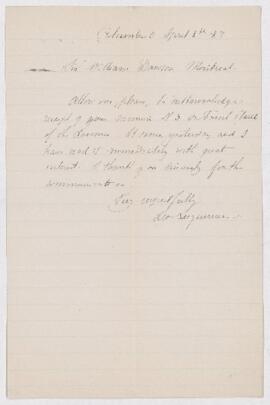 Columbus O April 8th 87
Sir William Dawson Montreal.
Allow me, please, to acknowledge
receipt of your memoir N 3. on Fossil Plants
of the Laramie. It came yesterday and I
have read it immediately with great
interest. I thank you sincerely for the
communication
Very respectfully
Leo Lesquereux